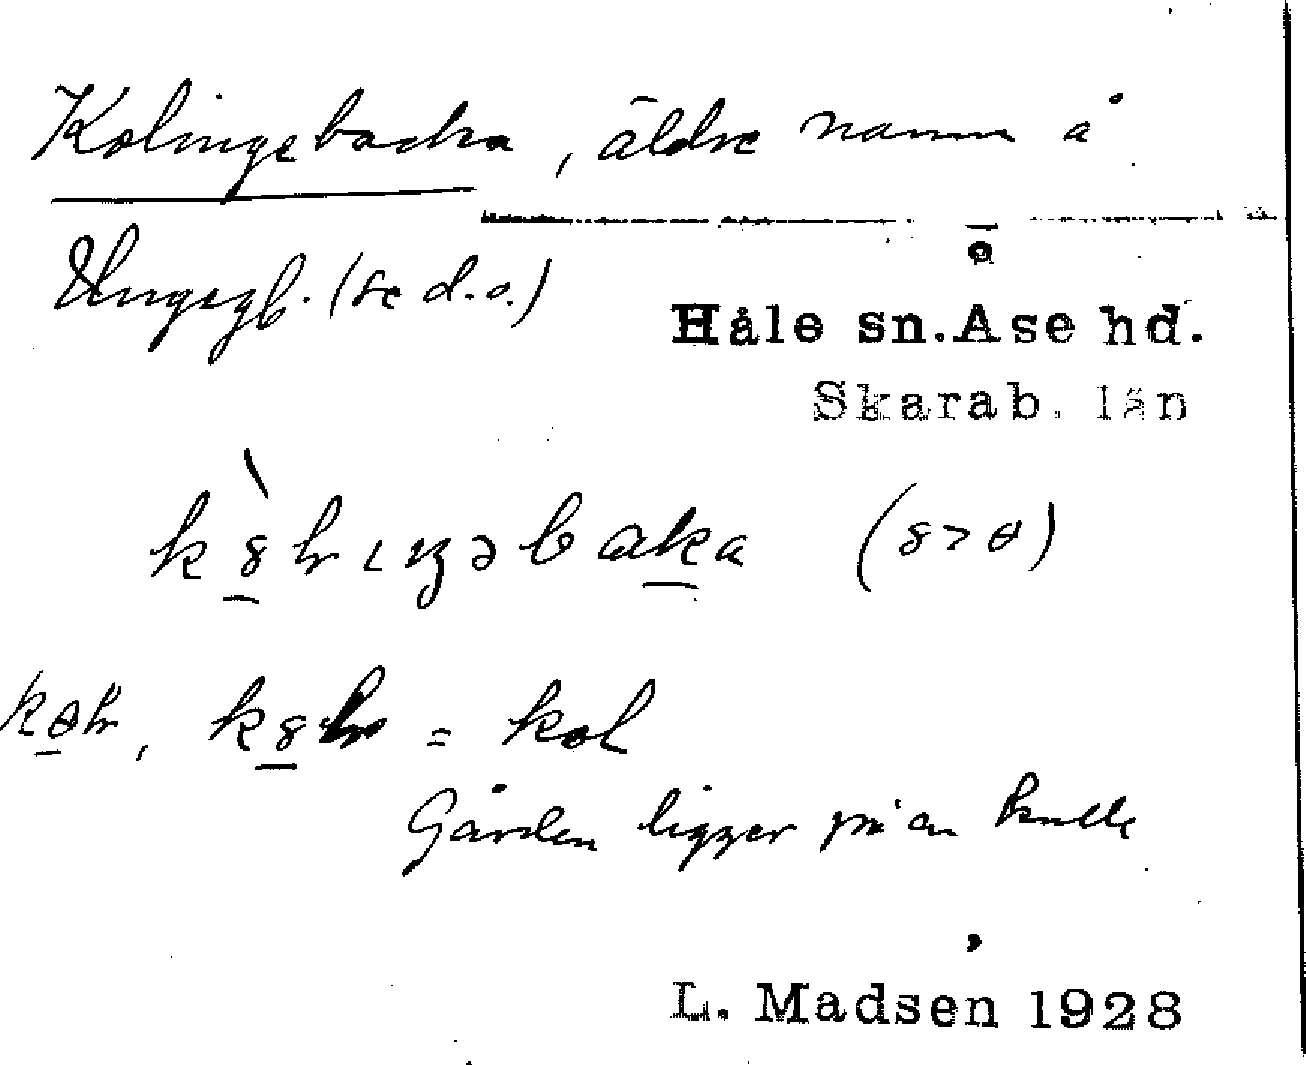 Kolingebacka, äldre namn å
Ängegb. (se d.o.)
Håle sn. Åse hd.
Skarab. län
(8>ɵ)
= kol
Gården ligger på en kulle
L. Madsen 1928